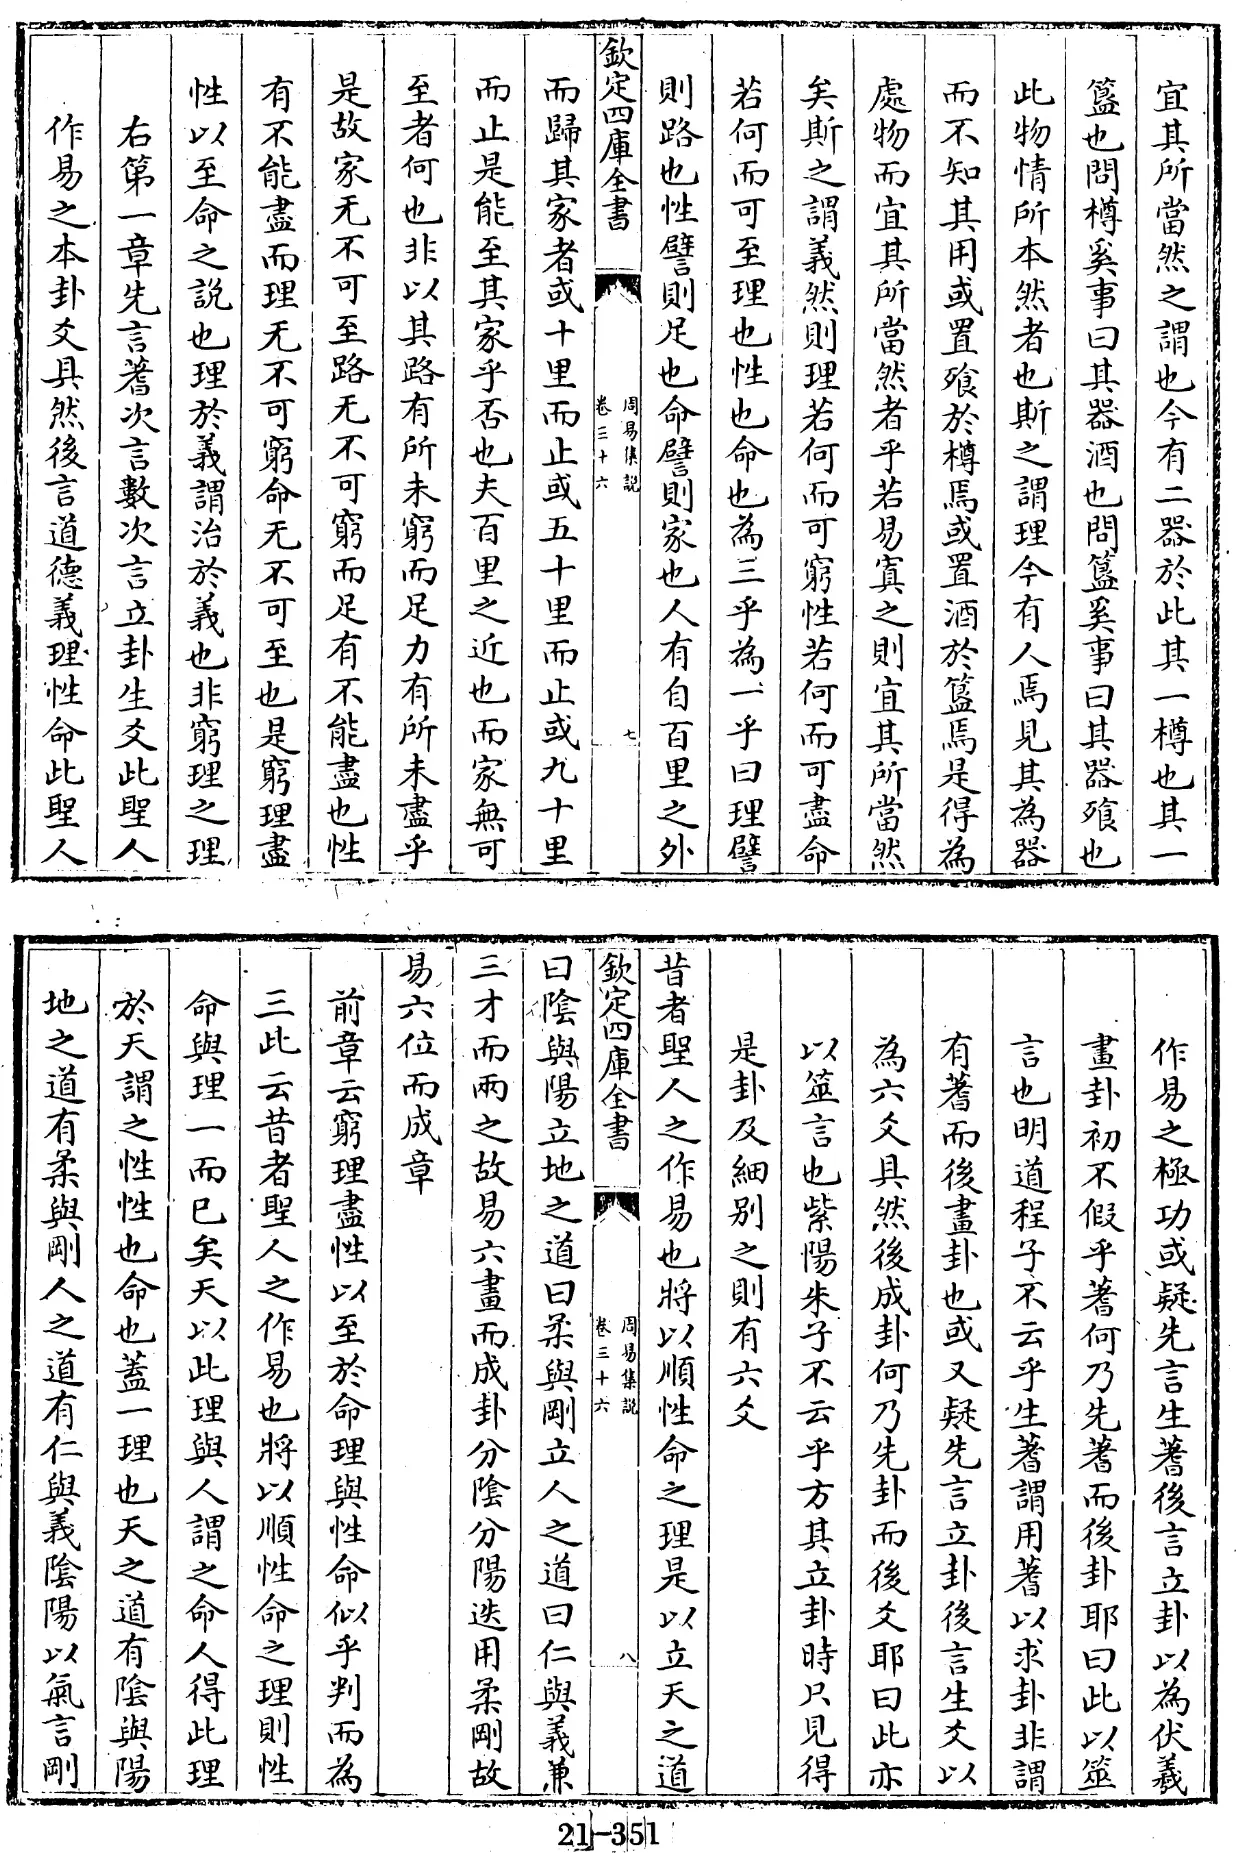 宜其所當然之謂也今有二器於此其一樽也其一
簋也問樽奚事曰其器酒也問簋奚事曰其器飱也
此物情所本然者也斯之謂理今有人焉見其為器
而不知其用或置飱於樽焉或置酒於簋焉是得為
處物而宜其所當然者乎若易寘之則宜其所當然
矣斯之謂義然則理若何而可窮性若何而可盡命
若何而可至理也性也命也為三乎為一乎曰理譬
則路也性譬則足也命譬則家也人有自百里之外
欽定四庫全書
周易集説
卷三十六
七
而歸其家者或十里而止或五十里而止或九十里
而止是能至其家乎否也夫百里之近也而家無可
至者何也非以其路有所未窮而足力有所未盡乎
是故家无不可至路无不可窮而足有不能盡也性
有不能盡而理无不可窮命无不可至也是窮理盡
性以至命之説也理於義謂治於義也非窮理之理
右第一章先言蓍次言數次言立卦生爻此聖人
作易之本卦爻具然後言道德義理性命此聖人
作易之極功或疑先言生蓍後言立卦以為伏羲
畫卦初不假乎蓍何乃先蓍而後卦耶曰此以筮
言也明道程子不云乎生蓍謂用蓍以求卦非謂
有蓍而後畫卦也或又疑先言立卦後言生爻以
為六爻具然後成卦何乃先卦而後爻耶曰此亦
以筮言也紫陽朱子不云乎方其立卦時只見得
是卦及細别之則有六爻
昔者聖人之作易也將以順性命之理是以立天之道
欽定四庫全書
周易集説
卷三十六
八
曰陰與陽立地之道曰柔與剛立人之道曰仁與義兼
三才而兩之故易六畫而成卦分陰分陽迭用柔剛故
易六位而成章
前章云窮理盡性以至於命理與性命似乎判而為
三此云昔者聖人之作易也將以順性命之理則性
命與理一而已矣天以此理與人謂之命人得此理
於天謂之性性也命也蓋一理也天之道有陰與陽
地之道有柔與剛人之道有仁與義陰陽以氣言剛
21-351